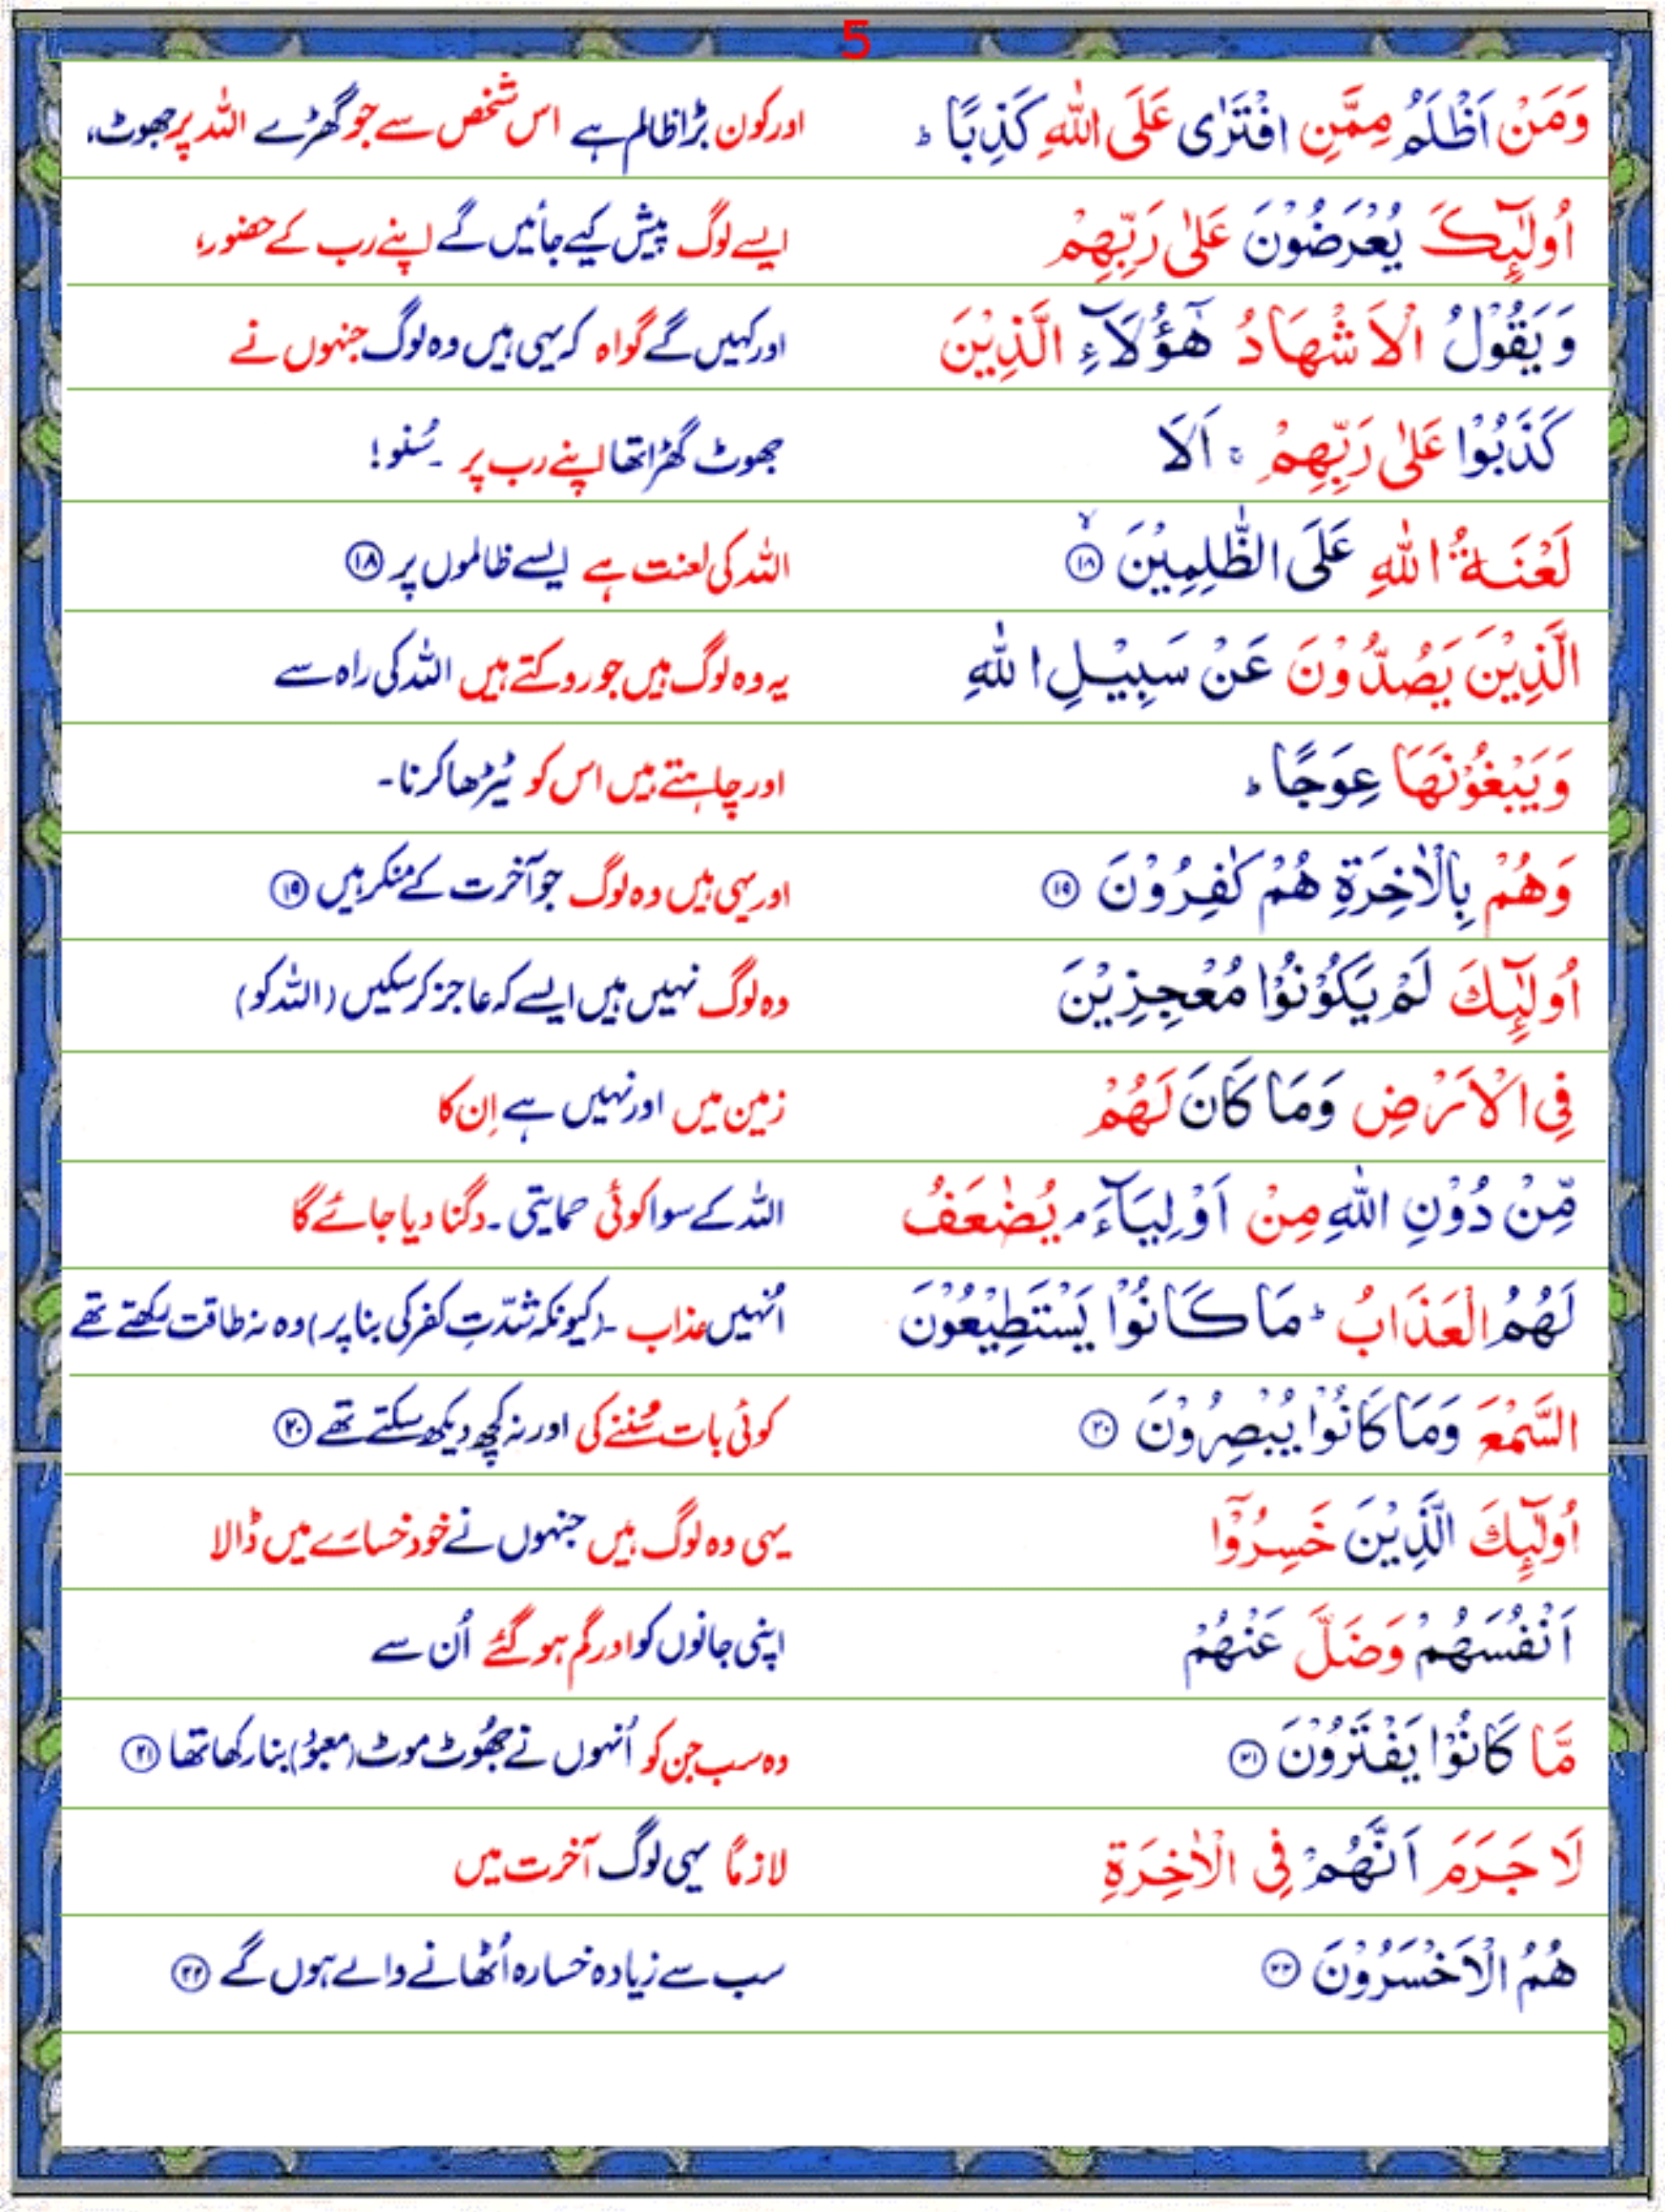 5
وَمَنْ اَظْلَمُ مِمَّنِ افْتَرٰى عَلَى اللّٰهِ كَذِبًا ؕ اور کون بڑا ظالم ہے اس شخص سے جو گھڑے اللہ پر جھوٹ،
اُولٰٓئِكَ يُعْرَضُوْنَ عَلٰى رَبِّهِمْ ایسے لوگ پیش کیے جائیں گے اپنے رب کے حضور،
وَيَقُوْلُ الْاَشْهَادُ هٰٓؤُلَآءِ الَّذِيْنَ اور کہیں گے گواہ کہ یہی ہیں وہ لوگ جنہوں نے
كَذَبُوْا عَلٰى رَبِّهِمْ ۚ اَلَا جھوٹ گھڑا تھا اپنے رب پر ۔ سُنو!
لَعْنَةُ اللّٰهِ عَلَى الظّٰلِمِيْنَ ۙ‏﴿۱۸﴾ اللہ کی لعنت ہے ایسے ظالموں پر ﴿۱۸﴾
الَّذِيْنَ يَصُدُّوْنَ عَنْ سَبِيْلِ اللّٰهِ یہ وہ لوگ ہیں جو روکتے ہیں اللہ کی راہ سے
وَيَبْغُوْنَهَا عِوَجًا ؕ اور چاہتے ہیں اس کو ٹیڑھا کرنا۔
وَهُمْ بِالْاٰخِرَةِ هُمْ كٰفِرُوْنَ ﴿۱۹﴾ اور یہی ہیں وہ لوگ جو آخرت کے منکر ہیں ﴿۱۹﴾
اُولٰٓئِكَ لَمْ يَكُوْنُوْا مُعْجِزِيْنَ وہ لوگ نہیں ہیں ایسے کہ عاجز کر سکیں (اللہ کو)
فِى الْاَرْضِ وَمَا كَانَ لَهُمْ زمین میں اور نہیں ہے اِن کا
مِّنْ دُوْنِ اللّٰهِ مِنْ اَوْلِيَآءَ ۘ يُضٰعَفُ اللہ کے سوا کوئی حمایتی ۔ دگنا دیا جائے گا
لَهُمُ الْعَذَابُ ؕ مَا كَانُوْا يَسْتَطِيْعُوْنَ اُنہیں عذاب ۔ (کیونکہ شدّتِ کفر کی بنا پر) وہ نہ طاقت رکھتے تھے
السَّمْعَ وَمَا كَانُوْا يُبْصِرُوْنَ ﴿۲۰﴾ کوئی بات سُننے کی اور نہ کچھ دیکھ سکتے تھے ﴿۲۰﴾
اُولٰٓئِكَ الَّذِيْنَ خَسِرُوْۤا یہی وہ لوگ ہیں جنہوں نے خود خسارے میں ڈالا
اَنْفُسَهُمْ وَضَلَّ عَنْهُمْ اپنی جانوں کو اور گم ہو گئے اُن سے
مَّا كَانُوْا يَفْتَرُوْنَ ﴿۲۱﴾ وہ سب جن کو اُنہوں نے جھُوٹ موٹ (معبُود) بنا رکھا تھا ﴿۲۱﴾
لَا جَرَمَ اَنَّهُمْ فِى الْاٰخِرَةِ لازمًا یہی لوگ آخرت میں
هُمُ الْاَخْسَرُوْنَ ﴿۲۲﴾ سب سے زیادہ خسارہ اُٹھانے والے ہوں گے ﴿۲۲﴾